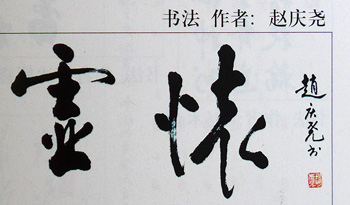 书法 作者：赵庆尧
虚怀
趙庆尧书